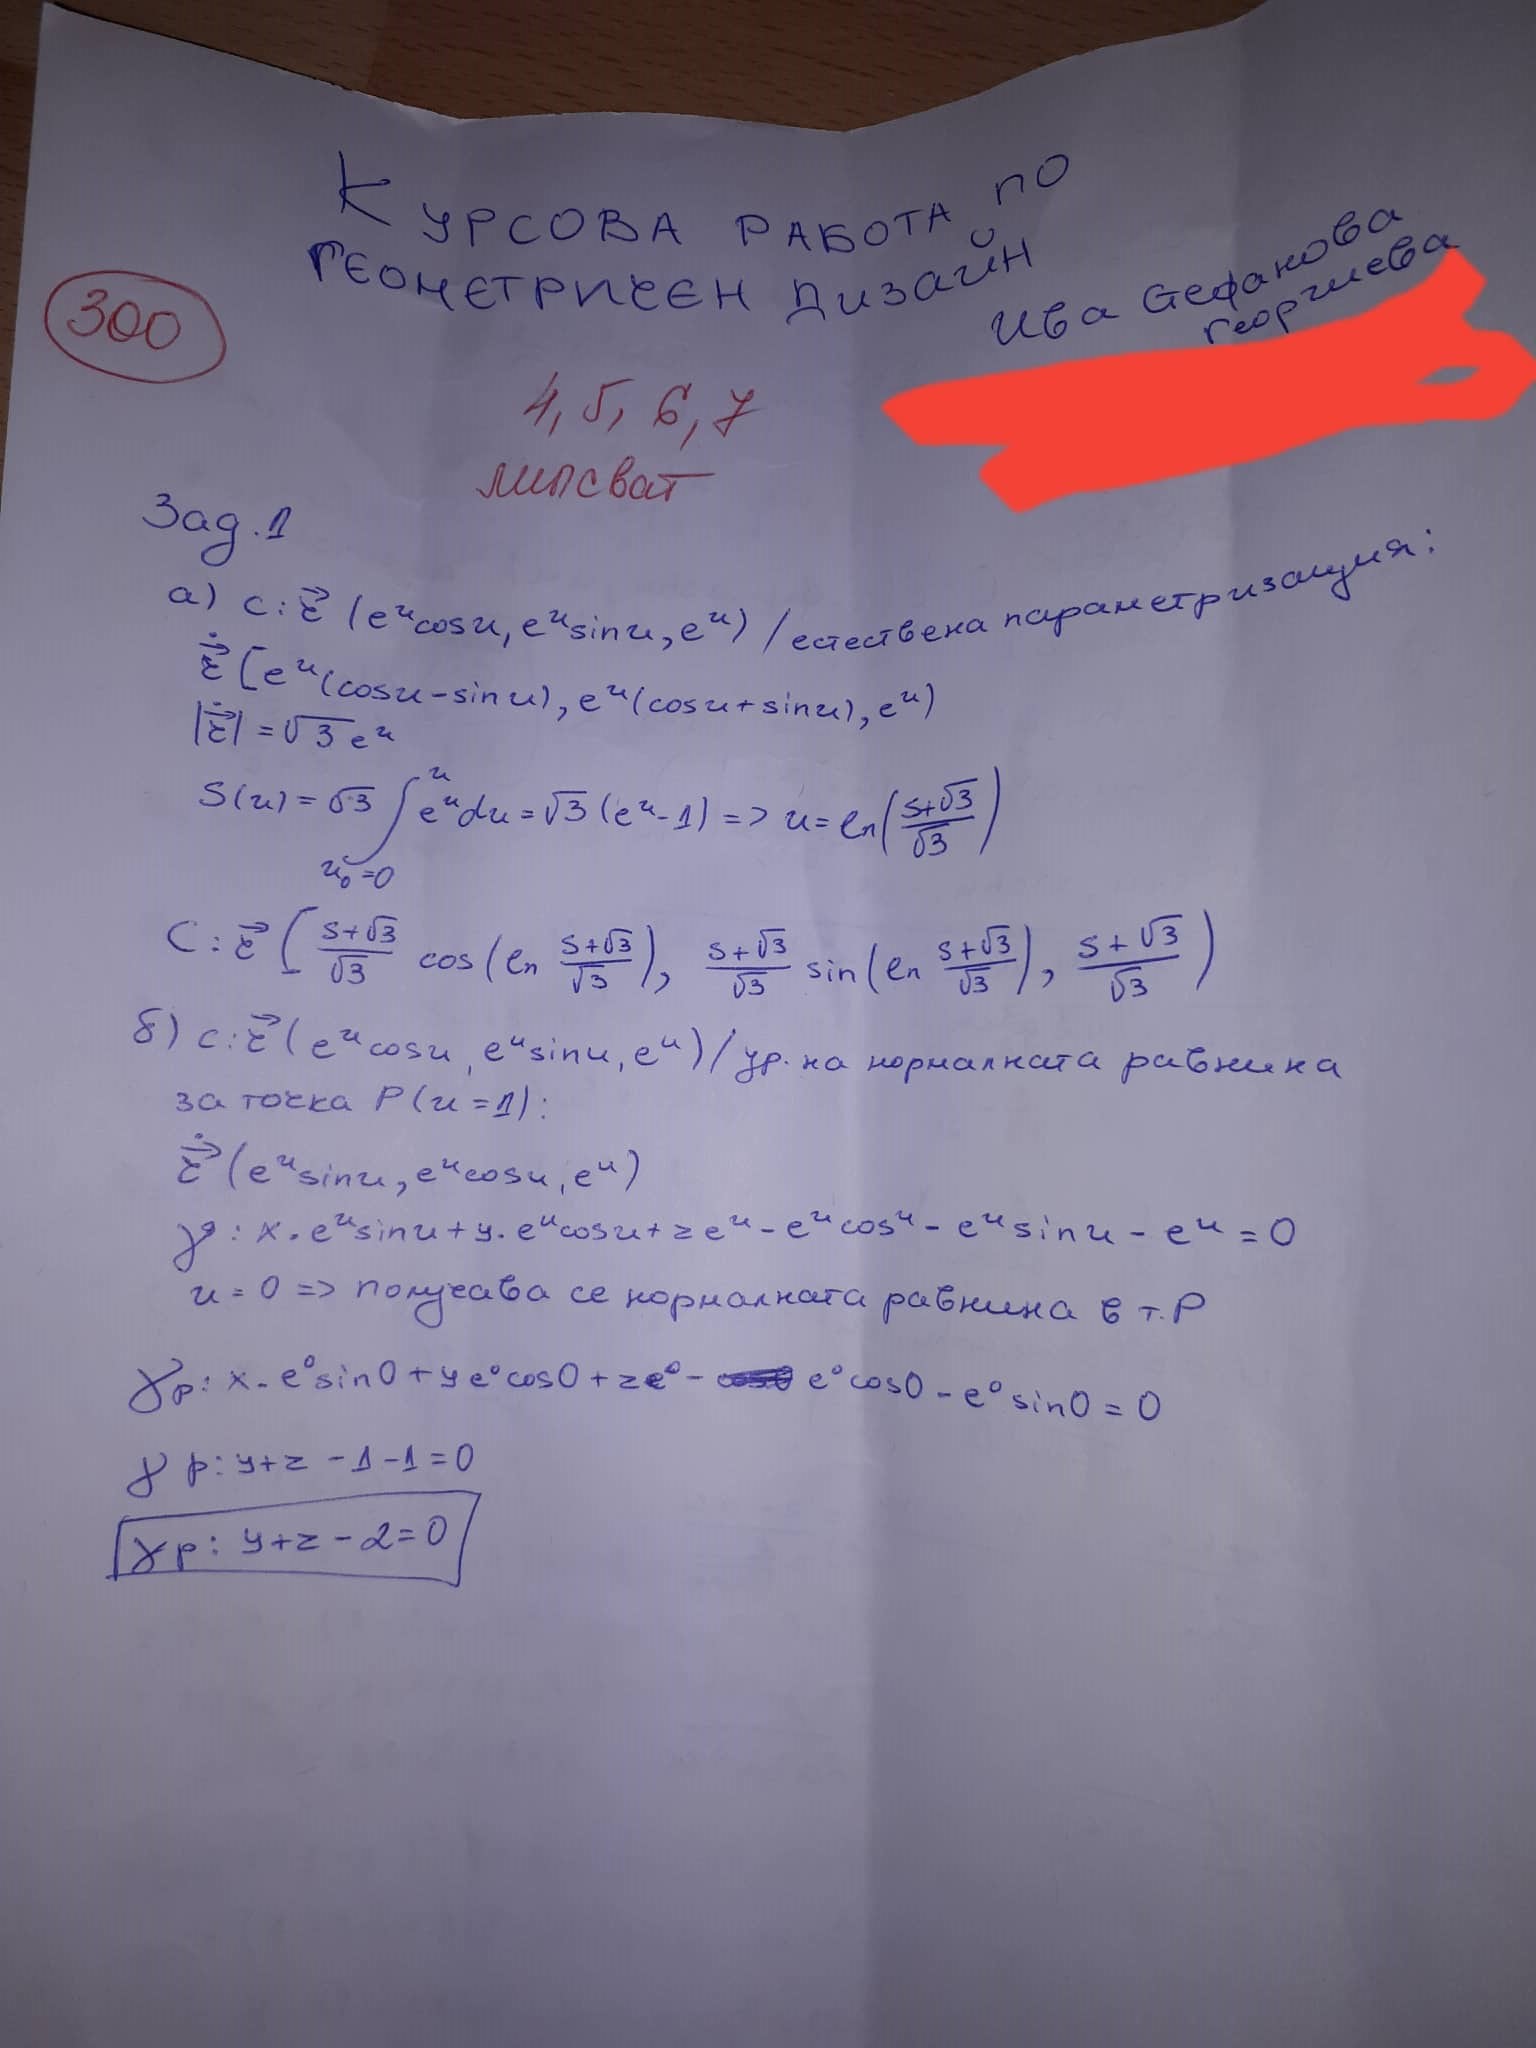 Курсова работа по
геометричен дизайн
Ива Стефанова
Георгиева
300
4, 5, 6, 7
липсват
Зад. 1
а) c: r⃗ (eᵘcosu, eᵘsinu, eᵘ) / естествена параметризация:
r⃗̇ [eᵘ(cosu-sinu), eᵘ(cosu+sinu), eᵘ)
|r⃗̇| = √3 eᵘ
S(u) = √3 ∫_{u₀=0}^{u} eᵘdu = √3 (eᵘ-1) => u = ln((s+√3)/√3)
C: r⃗ [(s+√3)/√3 cos(ln (s+√3)/√3), (s+√3)/√3 sin(ln (s+√3)/√3), (s+√3)/√3)
б) c: r⃗ (eᵘcosu, eᵘsinu, eᵘ) / ур. на нормалната равнина
за точка P(u=1):
r⃗̇ (eᵘsinu, eᵘcosu, eᵘ)
γ: x.eᵘsinu + y.eᵘcosu + zeᵘ - eᵘcosᵘ - eᵘsinu - eᵘ = 0
u = 0 => получава се нормалната равнина в т. P
γp: x.e⁰sin0 + ye⁰cos0 + ze⁰ - e⁰cos0 - e⁰sin0 = 0
γp: y+z -1-1=0
γp: y+z-2=0